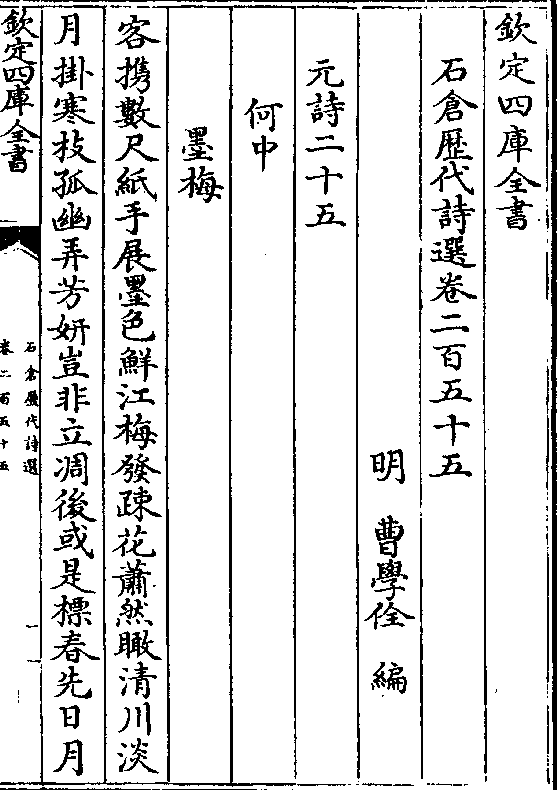 欽定四庫全書
石倉歴代詩選卷二百五十五
明　曹學佺　編
元詩二十五
何中
墨梅
客携數尺紙手展墨色鮮江梅發疎花蕭然瞰清川淡
月掛寒枝孤幽弄芳妍豈非立凋後或是標春先日月
欽定四庫全書
石倉歷代詩選
卷二百五十五
一